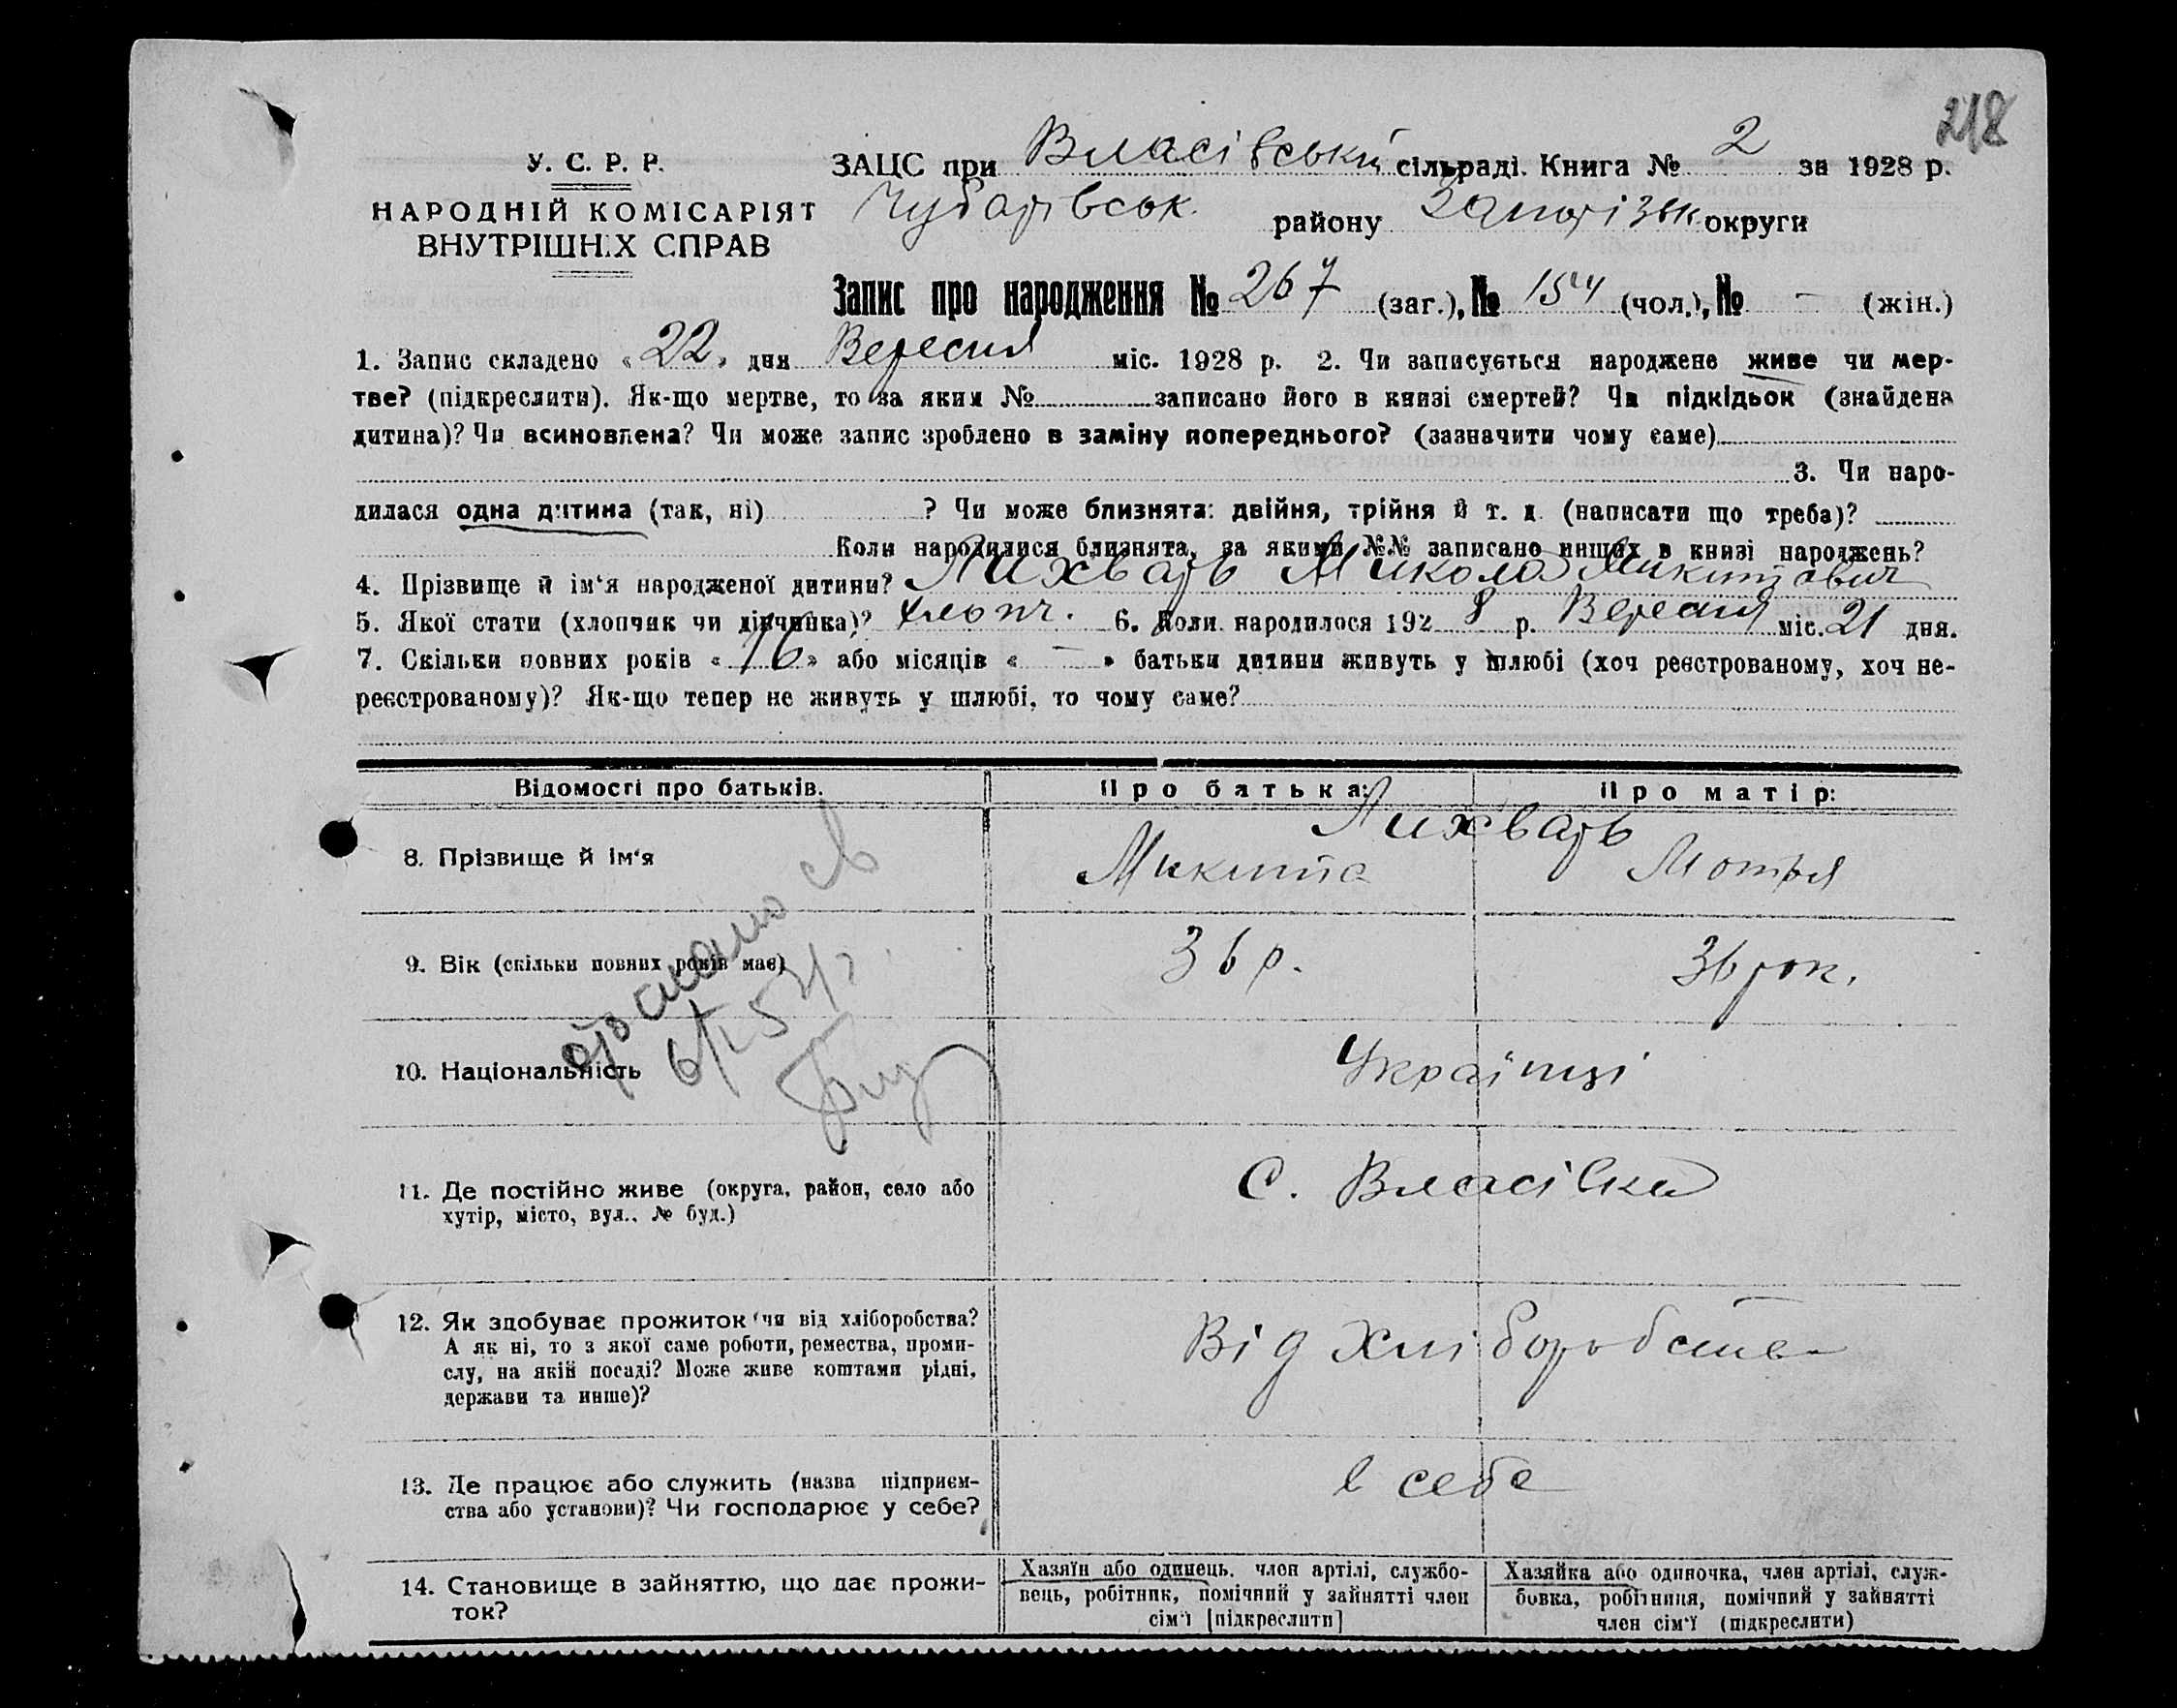 218
У. С. Р. Р.
НАРОДНІЙ КОМІСАРІЯТ
ВНУТРІШНІХ СПРАВ
ЗАЦС при Власівській сільраді. Книга № 2 за 1928 р.
Чубарівськ. району Запорізьк округи
Запис про народження № 267 (заг.), № 154 (чол.), № - (жін.)
1. Запис складено « 22 » дня Вересня міс. 1928 р. 2. Чи записується народжене живе чи мер-
тве? (підкреслити). Як-що мертве, то за яким № записано його в книзі смертей? Чи підкідьок (знайдена
дитина)? Чи всиновлена? Чи може запис зроблено в заміну попереднього? (зазначити чому саме)
3. Чи наро-
дилася одна дитина (так, ні) ? Чи може близнята: двійня, трійня й т. д. (написати що треба)?
Коли народилися близнята, за якими №№ записано инших в книзі народжень?
4. Прізвище й ім‘я народженої дитини? Лихварь Микола Микитович
5. Якої стати (хлопчик чи дівчинка)? хлопч. 6. Коли народилося 192 8 р. Вересня міс. 21 дня.
7. Скільки повних років « 16 » або місяців « - » батьки дитини живуть у шлюбі (хоч реєстрованому, хоч не-
реєстрованому)? Як-що тепер не живуть у шлюбі, то чому саме?
Відомості про батьків. Про батька: Про матір:
Лихварь
8. Прізвище й ім‘я Микита Мотря
9. Вік (скільки повних років має) 36 р. 36 рок.
10. Національність Українці
11. Де постійно живе (округа, район, село або
хутір, місто, вул., № буд.)
С. Власівка
12. Як здобуває прожиток (чи від хліборобства?
А як ні, то з якої саме роботи, ремества, проми-
слу, на якій посаді? Може живе коштами рідні,
держави та инше)?
Від хліборобства
13. Де працює або служить (назва підприєм-
ства або установи)? Чи господарює у себе?
в себе
14. Становище в зайняттю, що дає прожи-
ток?
Хазяїн або одинець, член артілі, службо-
вець, робітник, помічний у зайнятті член
сім‘ї [підкреслити]
Хазяйка або одиночка, член артілі, служ-
бовка, робітниця, помічний у зайнятті
член сім‘ї (підкреслити)